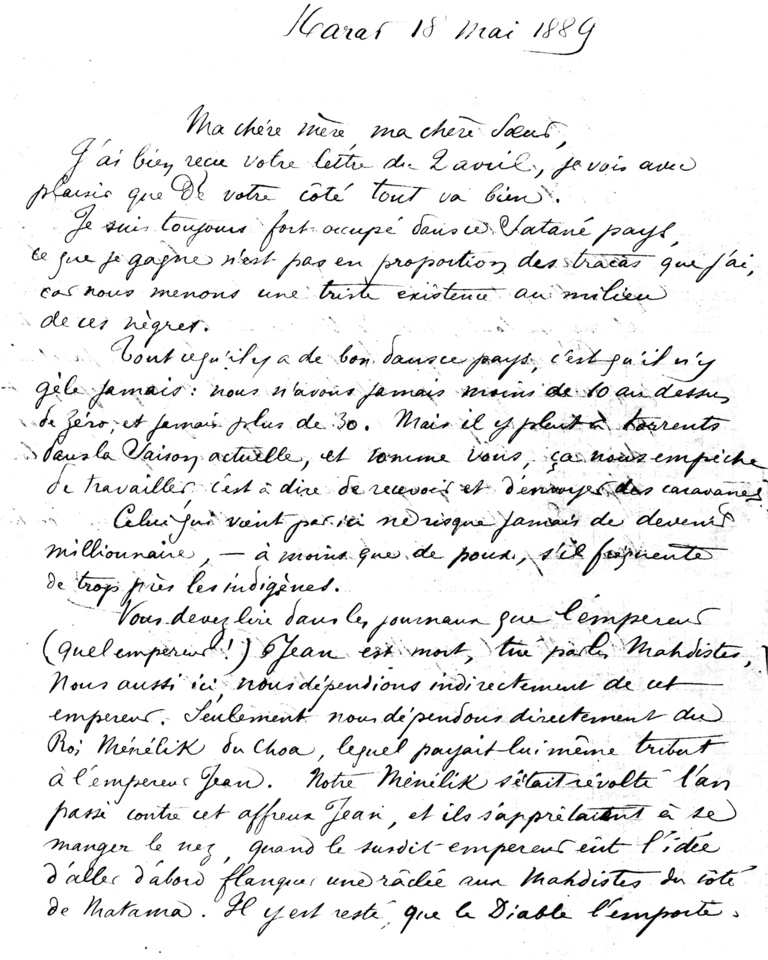 Harar 18 mai 1889
Ma chère mère, ma chère sœur,
J'ai bien reçu votre lettre du 2 avril, je vois avec
plaisir que De votre côté tout va bien.
Je suis toujours fort occupé dans ce Satané pays,
ce que je gagne n'est pas en proportion des tracas que j'ai,
car nous menons une triste existence au milieu
de ces nègres.
Tout ce qu'il y a de bon dans ce pays, c'est qu'il n'y
gèle jamais : nous n'avons jamais moins de 10 au dessus
de zéro, et jamais plus de 30. Mais il y pleut à torrents
dans la Saison actuelle, et comme vous, ça nous empêche
de travailler, c'est à dire de recevoir et d'envoyer des caravanes.
Celui qui vient par ici ne risque jamais de devenir
millionnaire, — à moins que de poux, s'il fréquente
de trop près les indigènes.
Vous devez lire dans les journaux que l'empereur
(quel empereur !) Jean est mort, tué par les Mahdistes,
Nous aussi ici, nous dépendions indirectement de cet
empereur. Seulement nous dépendons directement du
Roi Ménélik du Choa, lequel payait lui même tribut
à l'empereur Jean. Notre Ménélik s'était révolté l'an
passé contre cet affreux Jean, et ils s'apprêtaient à se
manger le nez, quand le susdit empereur eût l'idée
d'aller d'abord flanquer une râclée aux Mahdistes du côté
de Matama. Il y est resté, que le Diable l'emporte.